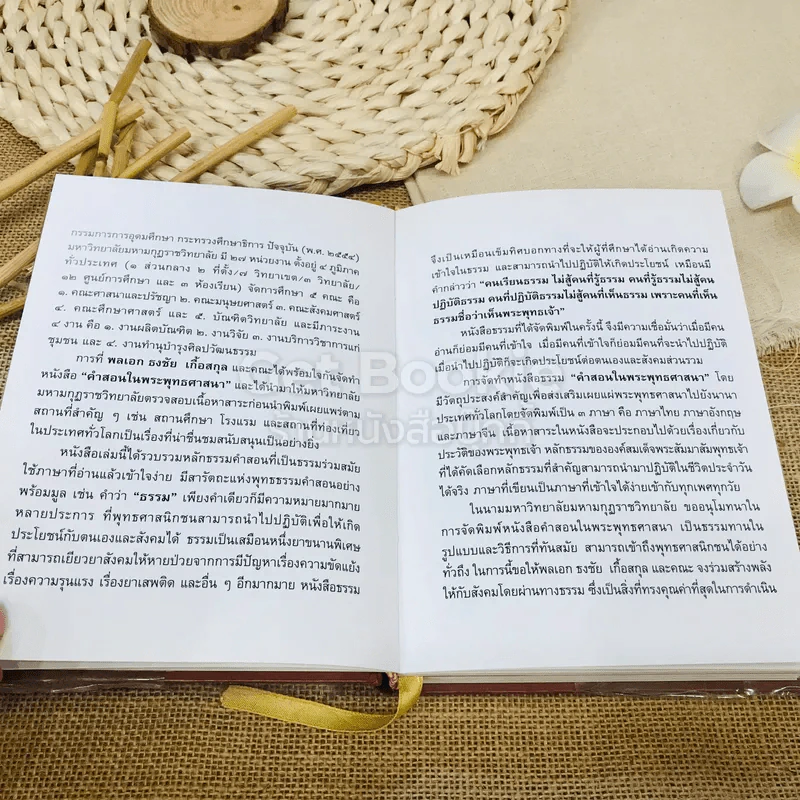 กรรมการการอุดมศึกษา กระทรวงศึกษาธิการ ปัจจุบัน (พ.ศ. ๒๕๕๔)
มหาวิทยาลัยมหามกุฏราชวิทยาลัย มี ๒๗ หน่วยงาน ตั้งอยู่ ๔ ภูมิภาค
ทั่วประเทศ (๑ ส่วนกลาง ๒ ที่ตั้ง/๗ วิทยาเขต/๓ วิทยาลัย/
๑๒ ศูนย์การศึกษา และ ๓ ห้องเรียน) จัดการศึกษา ๕ คณะ คือ
๑. คณะศาสนาและปรัชญา ๒. คณะมนุษยศาสตร์ ๓. คณะสังคมศาสตร์
๔. คณะศึกษาศาสตร์ และ ๕. บัณฑิตวิทยาลัย และมีภาระงาน
๔ งาน คือ ๑. งานผลิตบัณฑิต ๒. งานวิจัย ๓. งานบริการวิชาการแก่
ชุมชน และ ๔. งานทำนุบำรุงศิลปวัฒนธรรม
การที่ พลเอก ธงชัย เกื้อสกุล และคณะได้พร้อมใจกันจัดทำ
หนังสือ "คำสอนในพระพุทธศาสนา" และได้นำมาให้มหาวิทยาลัย
มหามกุฏราชวิทยาลัยตรวจสอบเนื้อหาสาระก่อนนำพิมพ์เผยแพร่ตาม
สถานที่สำคัญ ๆ เช่น สถานศึกษา โรงแรม และสถานที่ท่องเที่ยว
ในประเทศทั่วโลกเป็นเรื่องที่น่าชื่นชมสนับสนุนเป็นอย่างยิ่ง
หนังสือเล่มนี้ได้รวบรวมหลักธรรมคำสอนที่เป็นธรรมร่วมสมัย
ใช้ภาษาที่อ่านแล้วเข้าใจง่าย มีสารัตถะแห่งพุทธธรรมคำสอนอย่าง
พร้อมมูล เช่น คำว่า "ธรรม" เพียงคำเดียวก็มีความหมายมากมาย
หลายประการ ที่พุทธศาสนิกชนสามารถนำไปปฏิบัติเพื่อให้เกิด
ประโยชน์กับตนเองและสังคมได้ ธรรมเป็นเสมือนหนึ่งยาขนานพิเศษ
ที่สามารถเยียวยาสังคมให้หายป่วยจากการมีปัญหาเรื่องความขัดแย้ง
เรื่องความรุนแรง เรื่องยาเสพติด และอื่น ๆ อีกมากมาย หนังสือธรรม
จึงเป็นเหมือนเข็มทิศบอกทางที่จะให้ผู้ที่ศึกษาได้อ่านเกิดความ
เข้าใจในธรรม และสามารถนำไปปฏิบัติให้เกิดประโยชน์ เหมือนมี
คำกล่าวว่า "คนเรียนธรรม ไม่สู้คนที่รู้ธรรม คนที่รู้ธรรมไม่สู้คน
ปฏิบัติธรรม คนที่ปฏิบัติธรรมไม่สู้คนที่เห็นธรรม เพราะคนที่เห็น
ธรรมชื่อว่าเห็นพระพุทธเจ้า"
หนังสือธรรมที่ได้จัดพิมพ์ในครั้งนี้ จึงมีความเชื่อมั่นว่าเมื่อมีคน
อ่านก็ย่อมมีคนที่เข้าใจ เมื่อมีคนที่เข้าใจก็ย่อมมีคนที่จะนำไปปฏิบัติ
เมื่อนำไปปฏิบัติก็จะเกิดประโยชน์ต่อตนเองและสังคมส่วนรวม
การจัดทำหนังสือธรรม "คำสอนในพระพุทธศาสนา" โดย
มีวัตถุประสงค์สำคัญเพื่อส่งเสริมเผยแผ่พระพุทธศาสนาไปยังนานา
ประเทศทั่วโลกโดยจัดพิมพ์เป็น ๓ ภาษา คือ ภาษาไทย ภาษาอังกฤษ
และภาษาจีน เนื้อหาสาระในหนังสือจะประกอบไปด้วยเรื่องเกี่ยวกับ
ประวัติของพระพุทธเจ้า หลักธรรมขององค์สมเด็จพระสัมมาสัมพุทธเจ้า
ที่ได้คัดเลือกหลักธรรมที่สำคัญสามารถนำมาปฏิบัติในชีวิตประจำวัน
ได้จริง ภาษาที่เขียนเป็นภาษาที่เข้าใจได้ง่ายเข้ากับทุกเพศทุกวัย
ในนามมหาวิทยาลัยมหามกุฏราชวิทยาลัย ขออนุโมทนาใน
การจัดพิมพ์หนังสือคำสอนในพระพุทธศาสนา เป็นธรรมทานใน
รูปแบบและวิธีการที่ทันสมัย สามารถเข้าถึงพุทธศาสนิกชนได้อย่าง
ทั่วถึง ในการนี้ขอให้พลเอก ธงชัย เกื้อสกุล และคณะ จงร่วมสร้างพลัง
ให้กับสังคมโดยผ่านทางธรรม ซึ่งเป็นสิ่งที่ทรงคุณค่าที่สุดในการดำเนิน